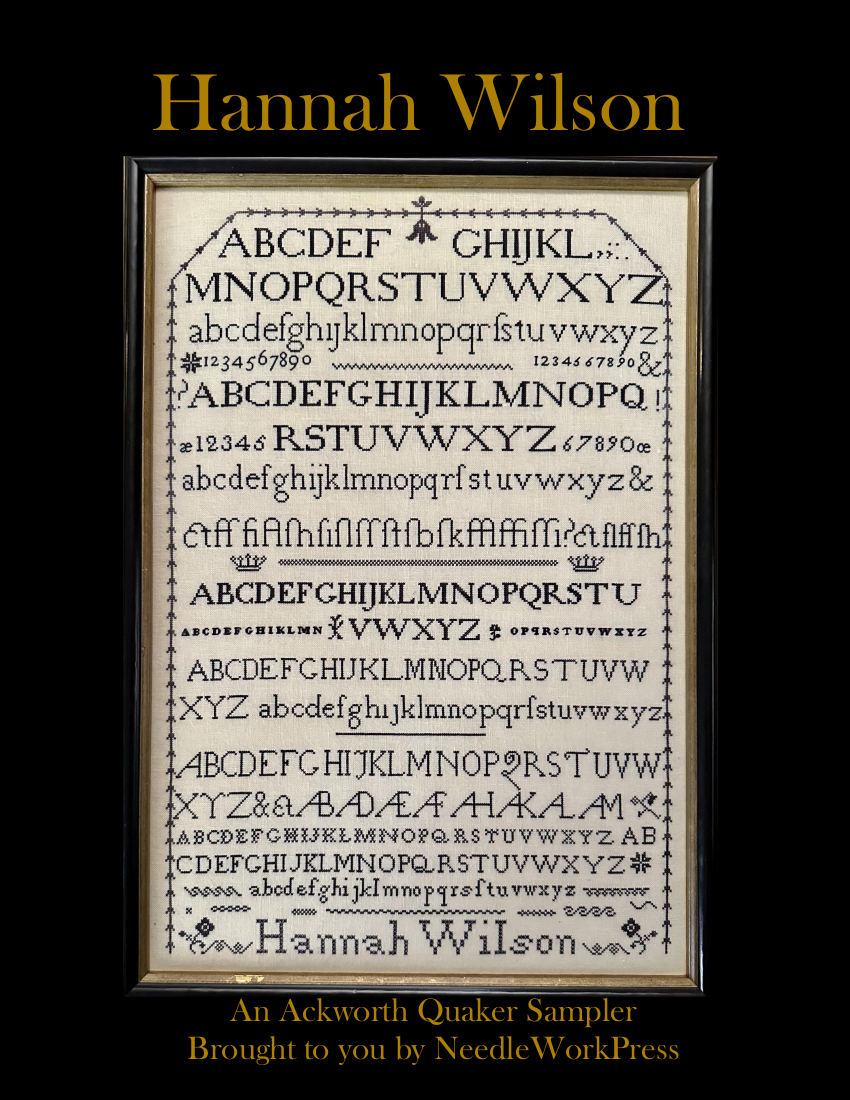 Hannah Wilson
ABCDEF GHIJKL,;:.
MNOPQRSTUVWXYZ
abcdefghijklmnopqrſstuvwxyz
1234567890 1234567890&
?ABCDEFGHIJKLMNOPQ!
æ12345 RSTUVWXYZ 67890œ
abcdefghijklmnopqrſstuvwxyz&
ABCDEFGHIJKLMNOPQRSTU
ABCDEFGHIKLMN VWXYZ OPQRSTUVWXYZ
ABCDEFGHIJKLMNOPQRSTUVW
XYZ abcdefghıjklmnopqrſstuvwxyz
ABCDEFGHIJKLMNOPQRSTUVW
XYZ&
ABCDEFGHIJKLMNOPQRSTUVWXYZ AB
CDEFGHIJKLMNOPQRSTUVWXYZ
abcdefghijklmnopqrsſtuvwxyz
Hannah Wilson
An Ackworth Quaker Sampler
Brought to you by NeedleWorkPress